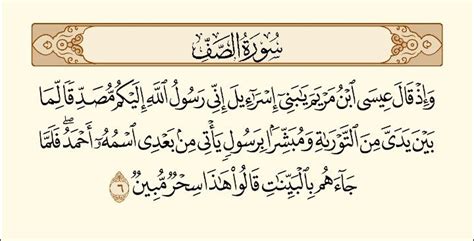 سُورَةُ الصَّفِّ
وَإِذْ قَالَ عِيسَى ابْنُ مَرْيَمَ يَٰبَنِىٓ إِسْرَٰٓءِيلَ إِنِّى رَسُولُ اللَّهِ إِلَيْكُم مُّصَدِّقًا لِّمَا
بَيْنَ يَدَىَّ مِنَ التَّوْرَىٰةِ وَمُبَشِّرًۢا بِرَسُولٍ يَأْتِى مِنۢ بَعْدِى اسْمُهُۥٓ أَحْمَدُ ۖ فَلَمَّا
جَآءَهُم بِالْبَيِّنَٰتِ قَالُوا۟ هَٰذَا سِحْرٌ مُّبِينٌ ٦